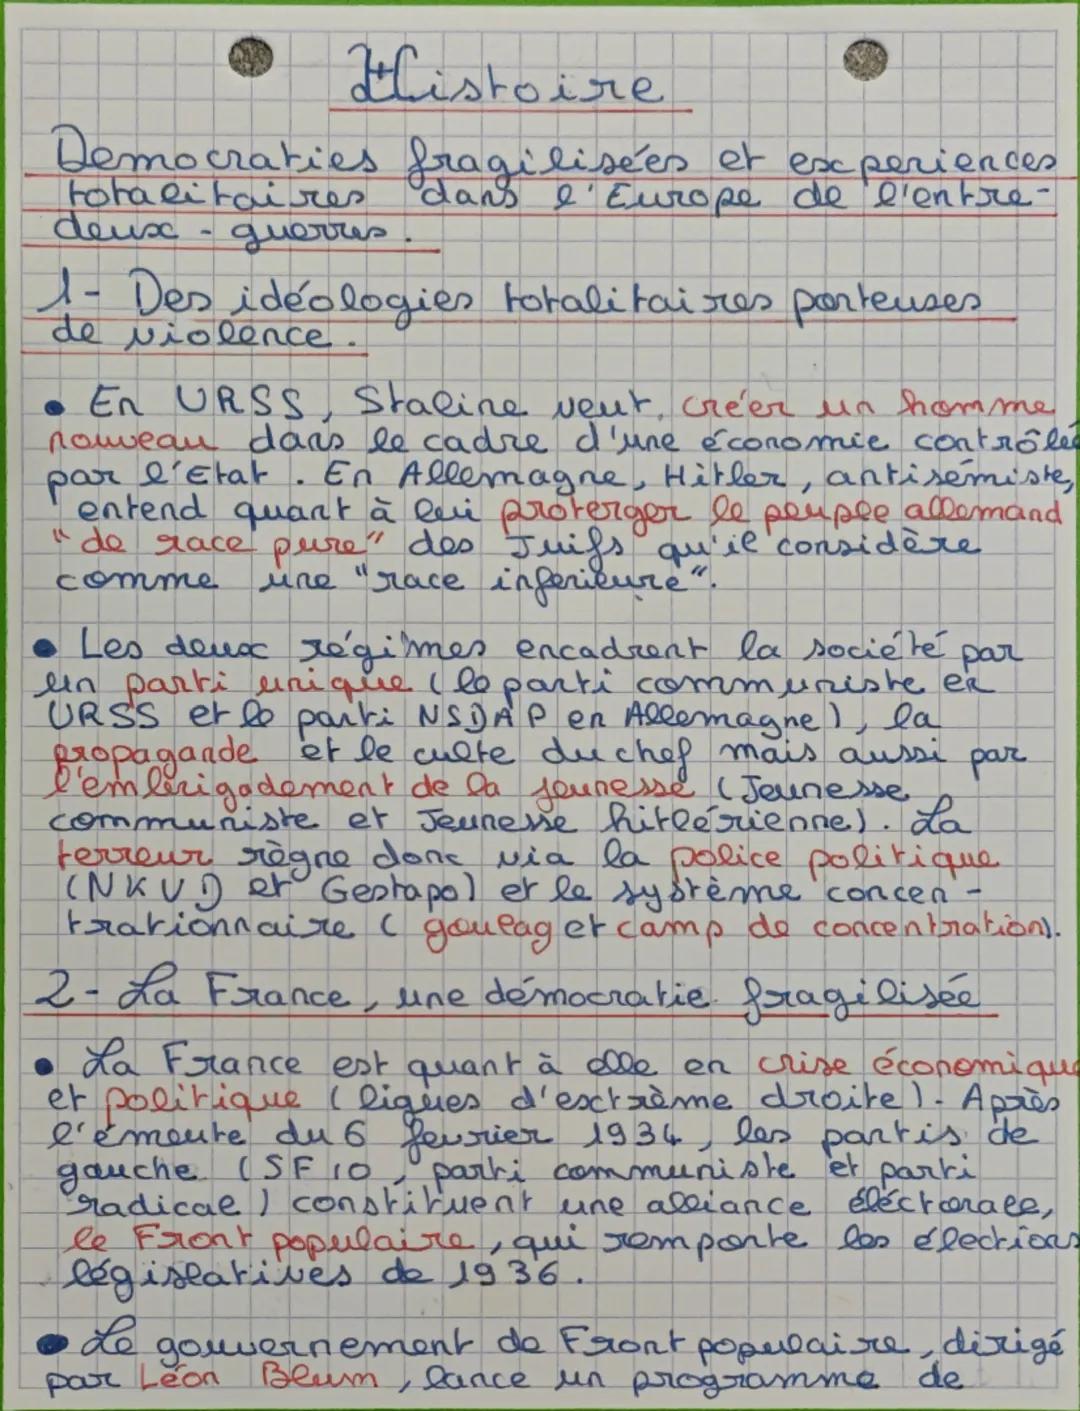 Histoire
Democraties fragilisées et experiences
totalitaires dans l'Europe de l'entre-
deux-guerres.
1- Des idéologies totalitaires porteuses
de violence.
• En URSS, Staline veut, créer un homme
nouveau dans le cadre d'une économie contrôlée
par l'Etat. En Allemagne, Hitler, antisémiste,
entend quant à lui proterger le peuple allemand
"de race pure" des Juifs qu'il considère
comme une "race inferieure".
• Les deux régimes encadrent la société par
un parti unique (le parti communiste en
URSS et le parti NSDAP en Allemagne), la
propagande et le culte du chef mais aussi par
l'embrigadement de la jeunesse (Jeunesse
communiste et Jeunesse hitlérienne). La
terreur règne donc via la police politique
(NKVD et Gestapo) et le système concen-
trationnaire (goulag et camp de concentration).
2- La France, une démocratie fragilisée
• La France est quant à elle en crise économique
et politique (ligues d'extrème droite). Après
l'émeute du 6 fevrier 1934, les partis de
gauche (SFIO, parti communiste et parti
radical) constituent une alliance éléctorale,
le Front populaire, qui remporte les élections
législatives de 1936.
• Le gouvernement de Front populaire, dirigé
par Léon Blum, lance un programme de